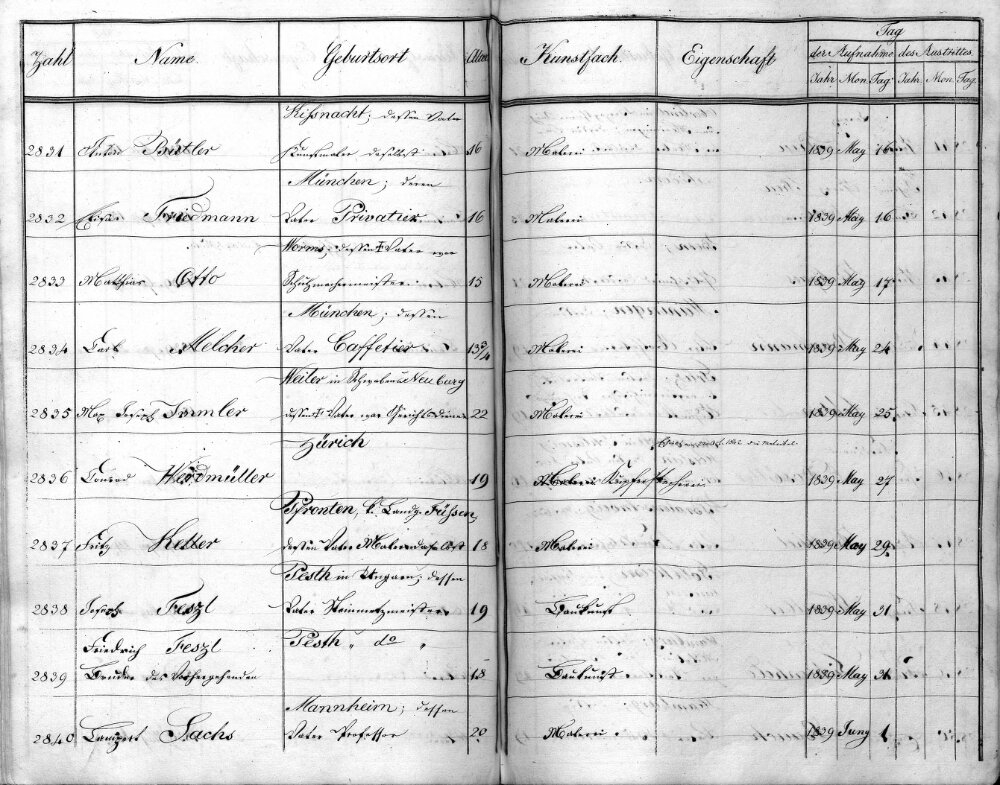 Tag
Zahl Name Geburtsort Alter Kunstfach. Eigenschaft der Aufnahme des Austrittes
Jahr Mon. Tag Jahr. Mon. Tag.
Kißnacht; dessen Vater
2831 Anton Bütler Kunstmaler daselbst 16 Malerei 1839 May 16
München; deren
2832 Friedmann Vater Privatier 16 Malerei 1839 May 16
Worms; dessen † Vater war
2833 Mathias Otto 15 Malerei 1839 May 17
München; dessen
2834 Carl Melcher Vater Caffetier 13 3/4 Malerei 1839 May 24
Weiler in Schwaben Neuburg
2835 Max Joseph Immler dessen † Vater war Gerichtsdiener 22 Malerei 1839 May 25
Zürich
2836 Conrad Werdmüller 19 Malerei Kupferstecherei 1839 May 27
Pfronten, k. Landg. Füssen,
2837 Fritz Keller dessen Vater Maler daselbst 18 Malerei 1839 May 29
Pesth in Ungarn; dessen
2838 Joseph Feszl Vater Steinmetzmeister 19 Baukunst 1839 May 31
Friedrich Feszl Pesth " do "
2839 Bruder des Vorhergehenden 18 Baukunst 1839 May 31
Mannheim; dessen
2840 Lampert Sachs Vater Professor 20 Malerei 1839 Juny 1